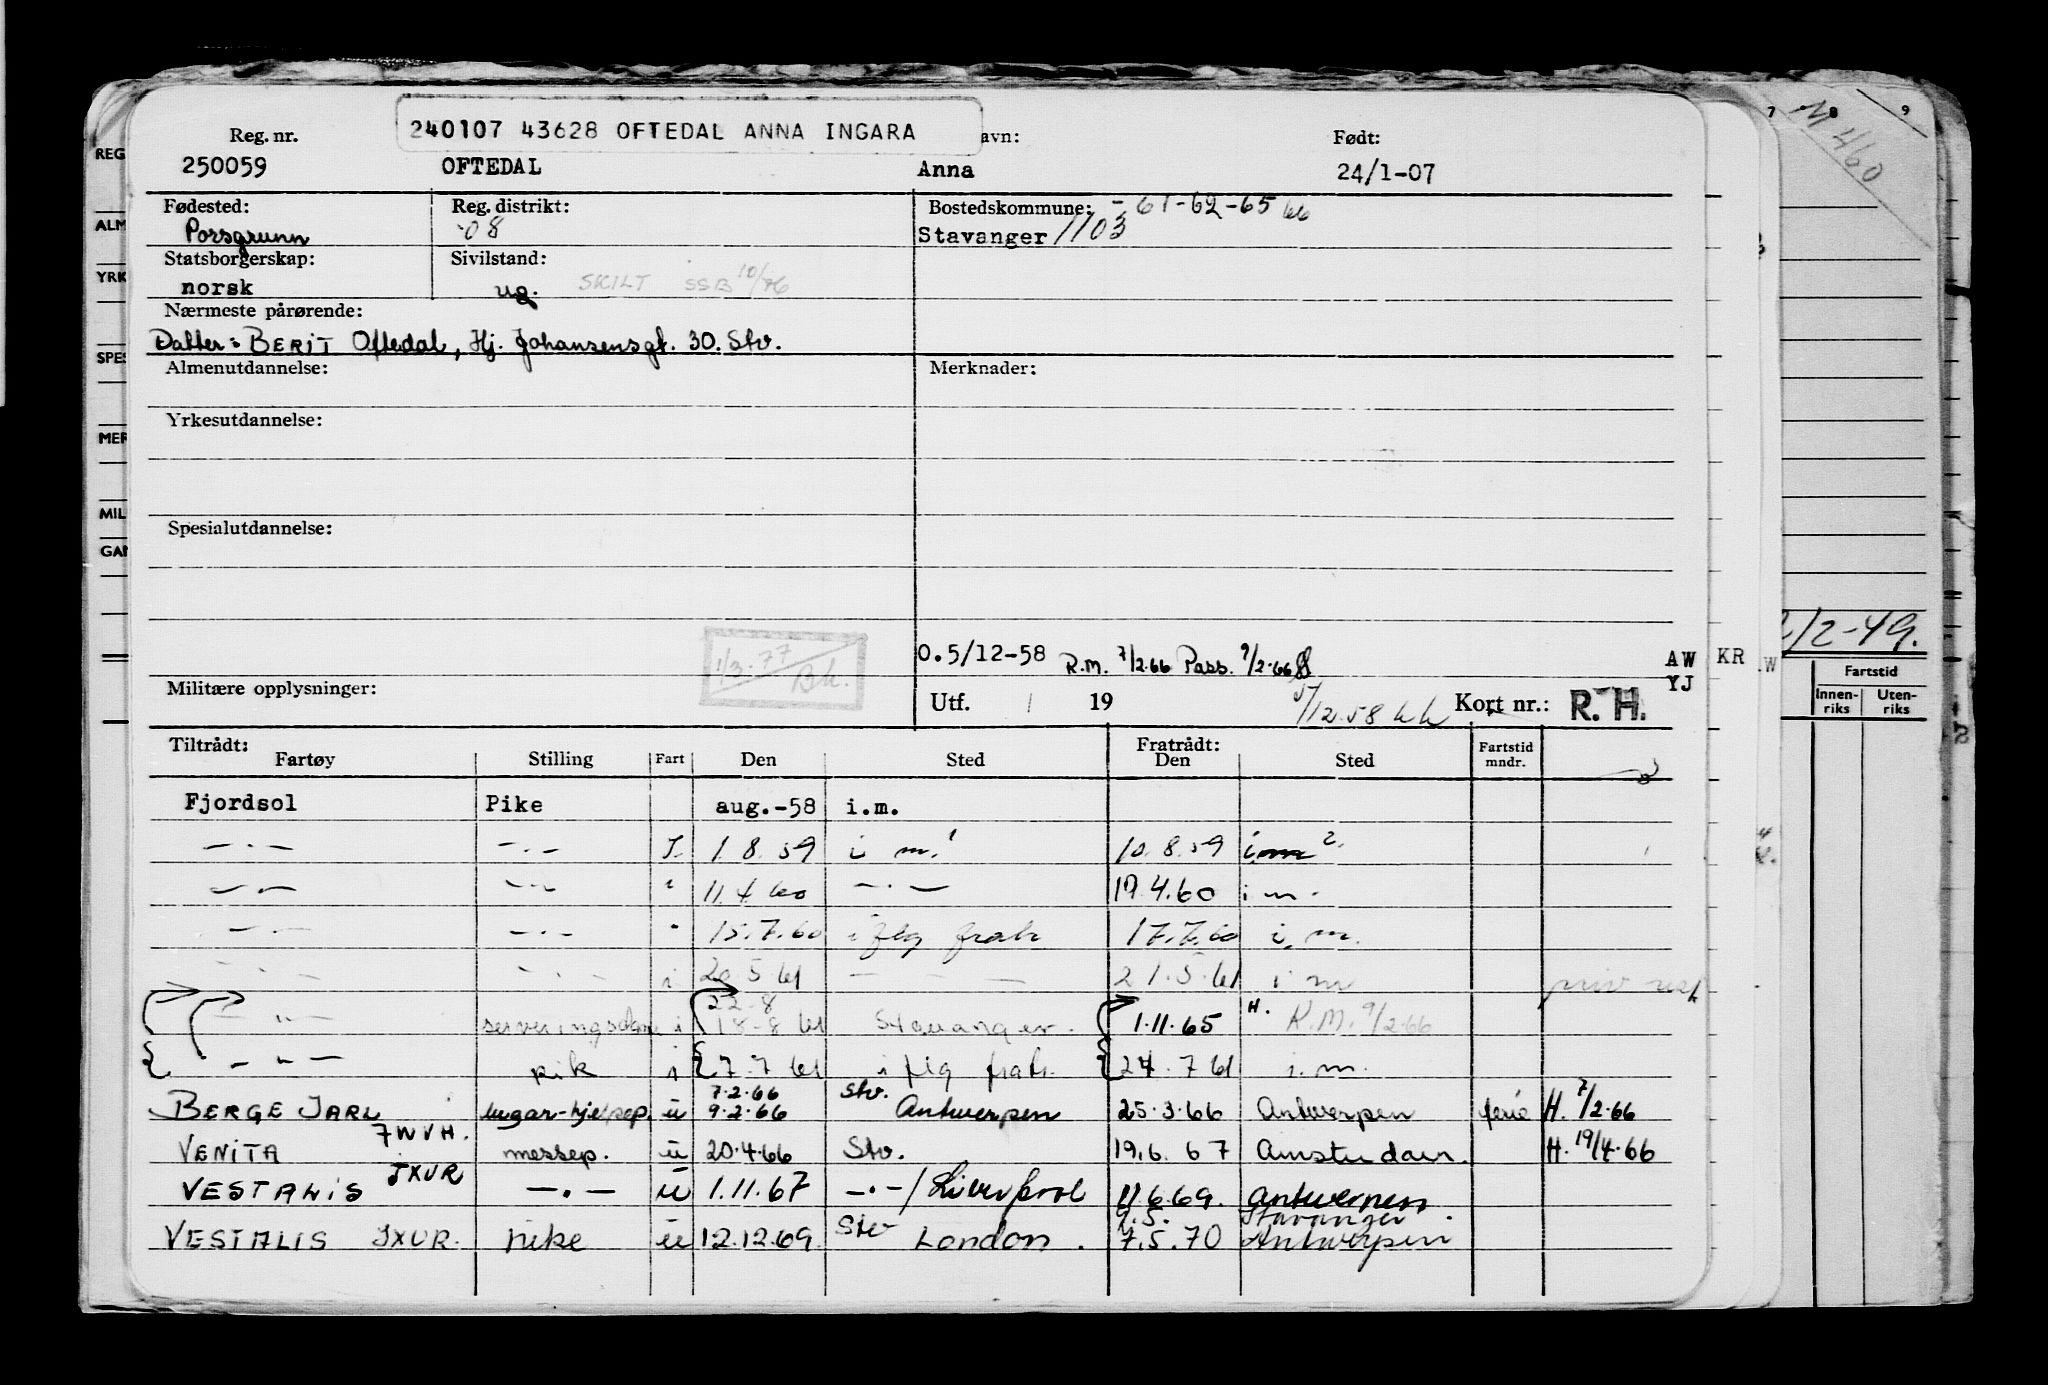 240107 43628 OFTEDAL ANNA INGARA
Reg. nr. avn: Født:
250059 OFTEDAL Anna 24/1-07
Fødested: Reg. distrikt: Bostedskommune: - 61-62-65 66
Porsgrunn 08 Stavanger 1103
Statsborgerskap: Sivilstand:
norsk ug. SKILT SSB 10/76
Nærmeste pårørende:
Datter: BERIT Oftedal, Hj. Johansensgt. 30. Stv.
Almenutdannelse: Merknader:
Yrkesutdannelse:
Spesialutdannelse:
1/3.77 Bh.
O.5/12-58 R.M. 7/2.66 Pass. 9/2.66
AW KR
YJ
Militære opplysninger: Utf. 19 5/12.58 Kort nr.: R. H.
Tiltrådt: Fratrådt:
Fartøy Stilling Fart Den Sted Den Sted Fartstid mndr.
Fjordsol Pike aug.-58 i.m.
—·— —·— I. 1.8.59 i m.1 10.8.59 i.m 2.
—·— —·— " 11.4.60 —·— 19.4.60 i m.
—·— —·— " 15.7.60 i flg fratr 17.7.60 i.m.
—·— —·— i 20.5.61 — — — 21.5.61 i m priv
22-8
— " — serveringsdame i 18-8 61 Stavanger. 1.11.65 H. R.M. 9/2-66
— " — pik i 27.7 61 i flg fratr. 24.7 61 i.m.
7.2.66 Stv.
BERGE JARL lugar-hjelpep. u 9.2.66 Antwerpen 25.3.66 Antwerpen ferie H. 7/2.66
7WVH.
VENITA messep. u 20.4.66 Stv. 19.6.67 Amsterdam. H. 19/4.66
VESTALIS JXUR —·— u 1.11.67 —·—/Liverpool 11.6.69. Antwerpen
9.5. Stavanger.
VESTALIS JXUR. pike u 12.12.69 Stv London. 7.5.70 Antwerpen
REG
ALM
YRK
SPES
MER
MIL
GAN
7 8 9
M 460
2/2-49.
Fartstid
Innen-riks Uten-riks